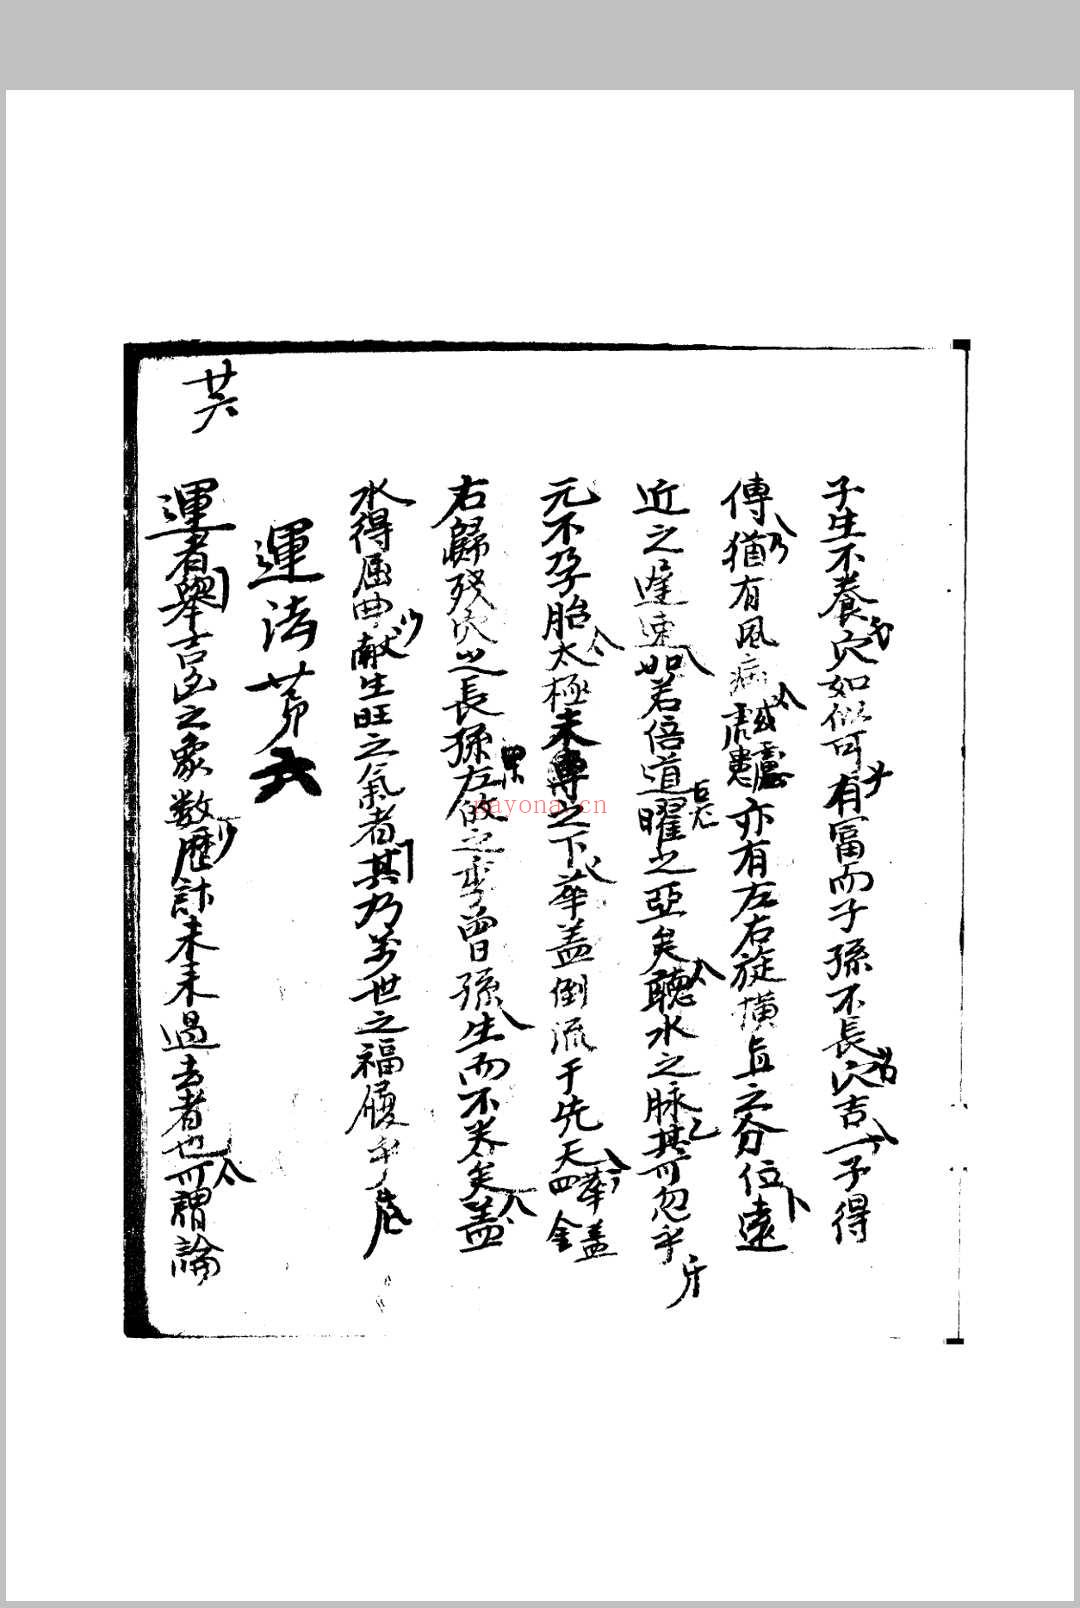 子生不養穴如似可有冨而子孫不長穴吉一予得
傳猶有風病 慮亦有左右旋橫直之分位遠
近之遲速如若倍道曜之亞矣聽水之脉其可忽乎
元不孕胎太極未專之下華盖倒流于先天四金華盖
右歸 穴之長孫左 之 曽孫生而不养矣盖
水得屈曲献生旺之氣者其乃万世之福 乎
運法苐六
運者舉吉凶之象数歷計未来過去者也可謂論
廿六
nayona.cn